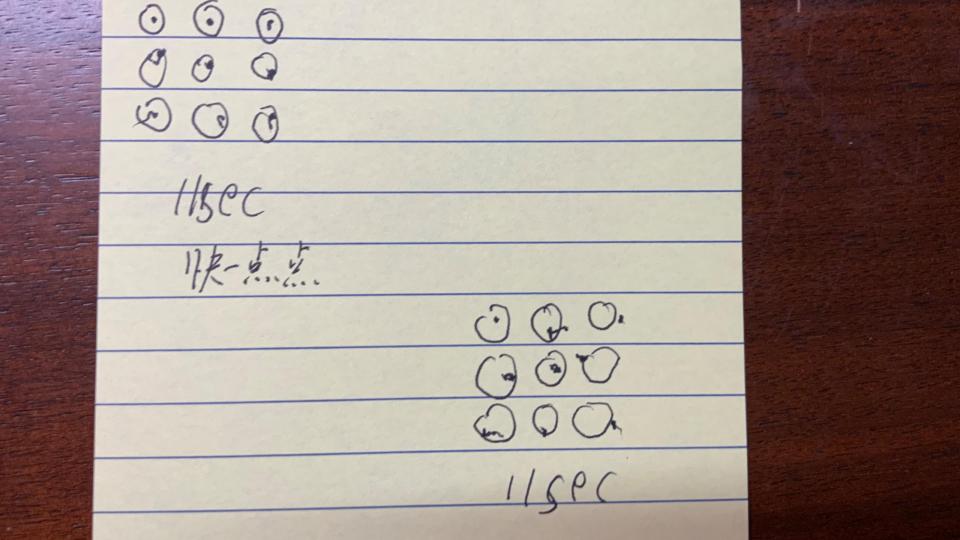 11sec
快一点点
11sec